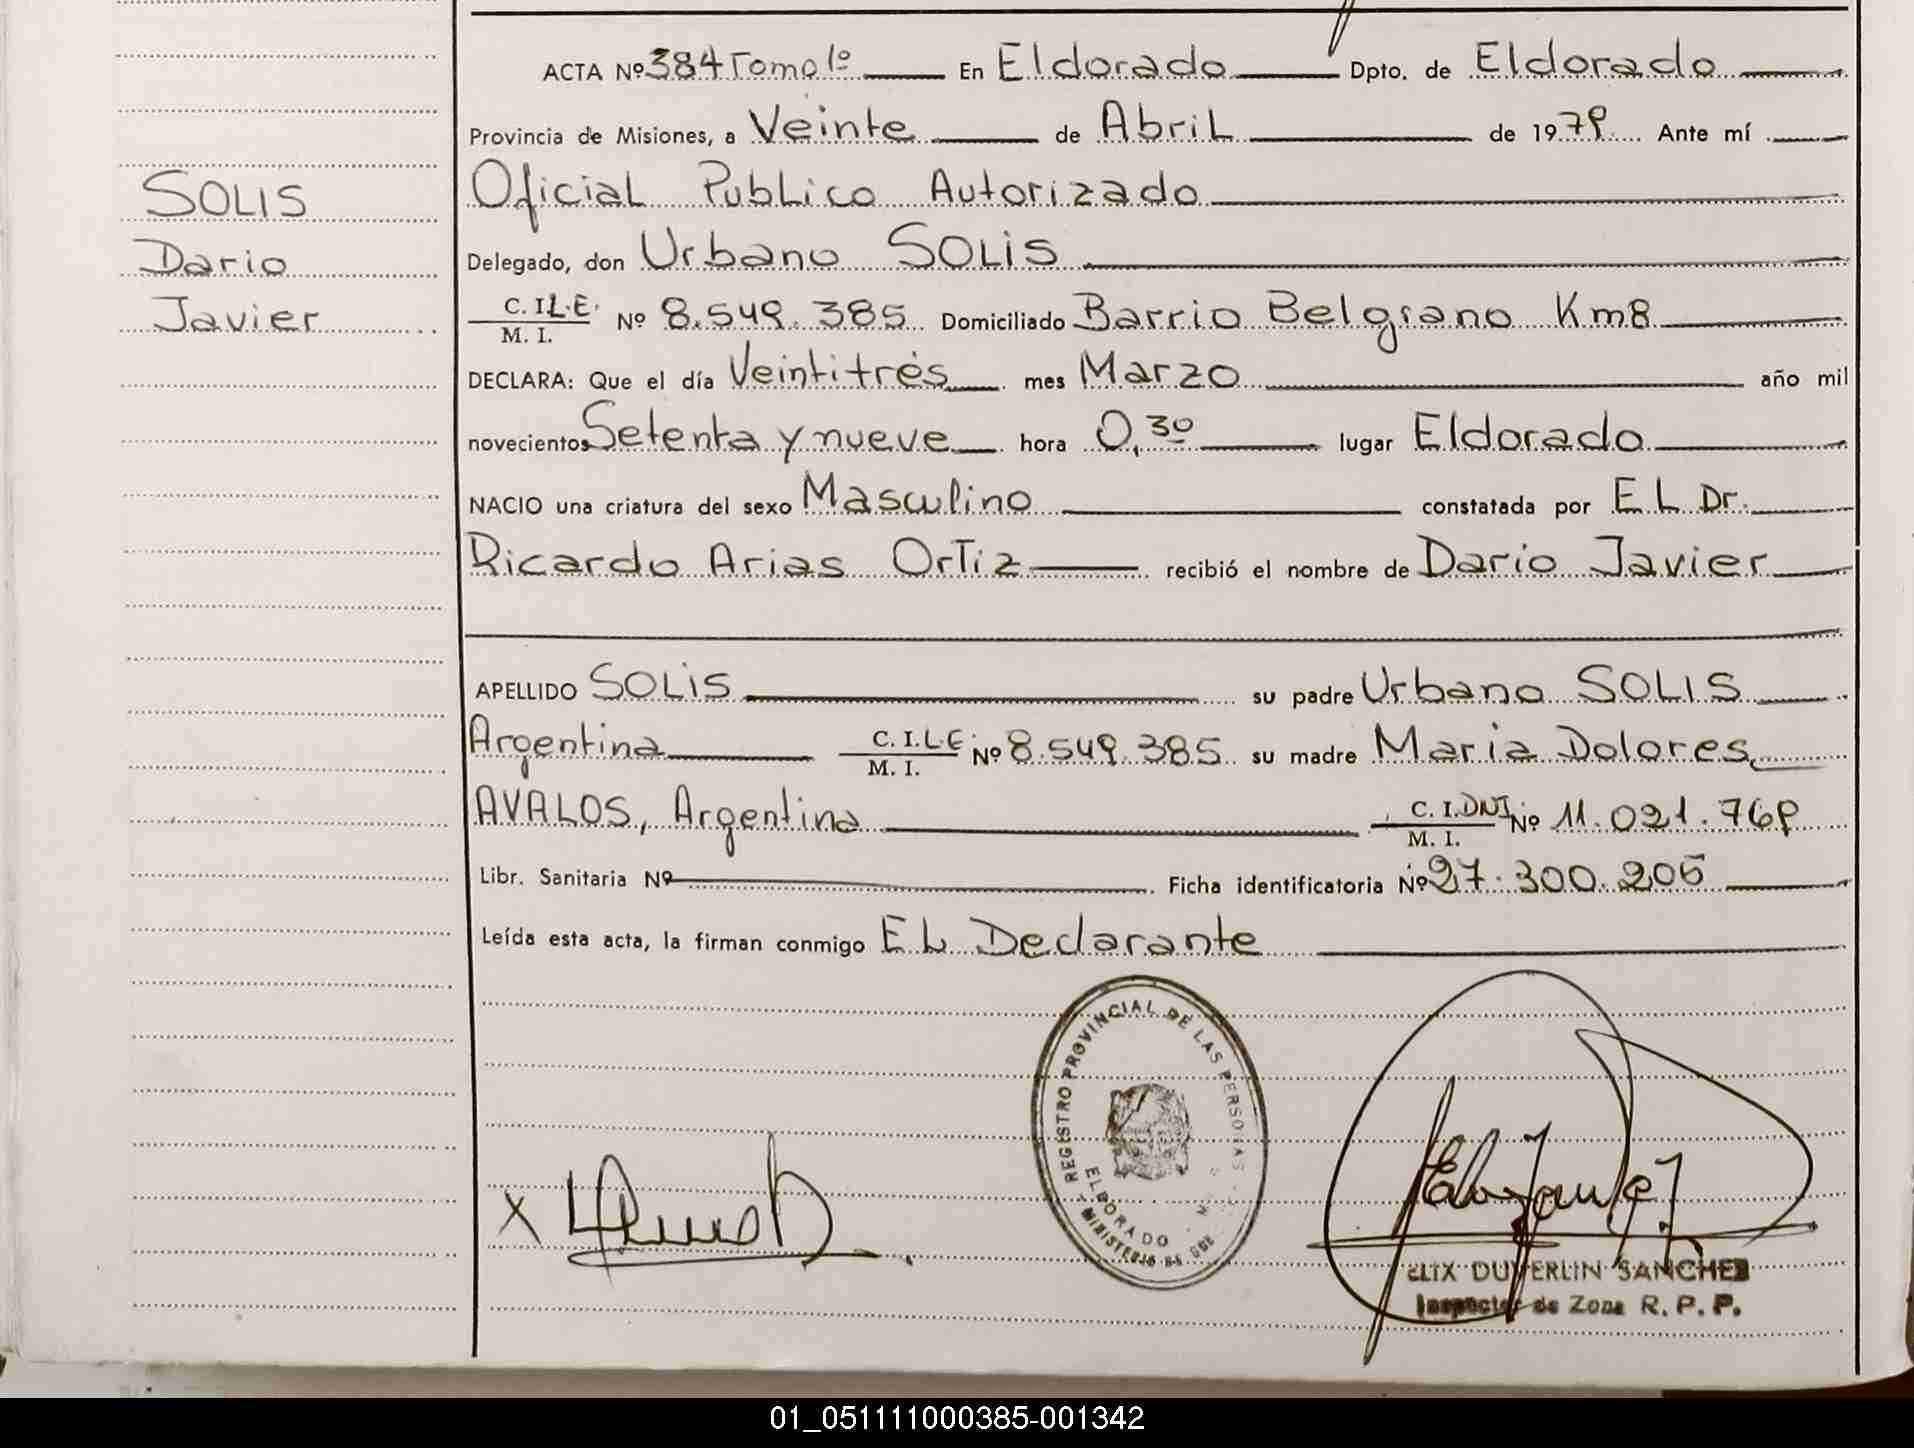 ACTA Nº 384 Tomo 1º En Eldorado Dpto. de Eldorado
Provincia de Misiones, a Veinte de Abril de 1979 Ante mí
Oficial Publico Autorizado
SOLIS
Delegado, don Urbano SOLIS
Dario
C. I. L.E. Nº 8.549.385 Domiciliado Barrio Belgrano Km8
M. I.
Javier
DECLARA: Que el día Veintitrés mes Marzo año mil
novecientos Setenta y nueve hora 0,30 lugar Eldorado
NACIO una criatura del sexo Masculino constatada por EL Dr.
Ricardo Arias Ortiz recibió el nombre de Dario Javier
APELLIDO SOLIS su padre Urbano SOLIS
Argentina C. I. L.E. Nº 8.549.385 su madre Maria Dolores
M. I.
AVALOS, Argentina C. I. DNI Nº 11.021.769
M. I.
Libr. Sanitaria Nº Ficha identificatoria Nº 27.300.205
Leída esta acta, la firman conmigo EL Declarante
REGISTRO PROVINCIAL DE LAS PERSONAS
ELDORADO
MINISTERIO DE GOB
X
ELIX DUVERLIN SANCHEZ
Inspector de Zona R. P. P.
01_051111000385-001342